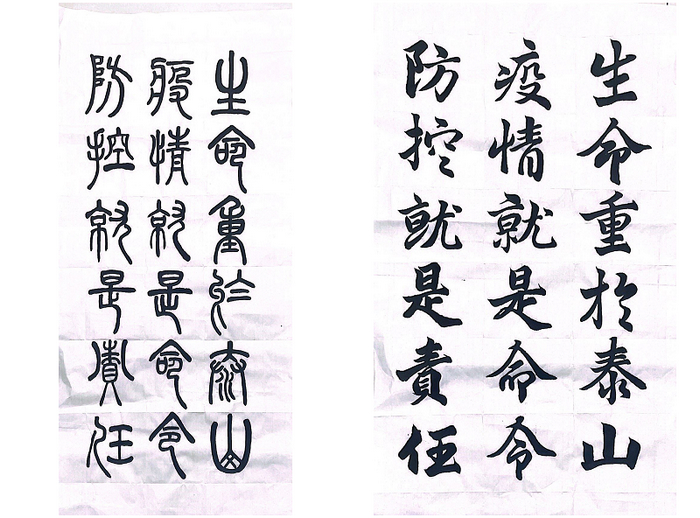 生命重於泰山
疫情就是命令
防控就是責任
生命重於泰山
疫情就是命令
防控就是責任